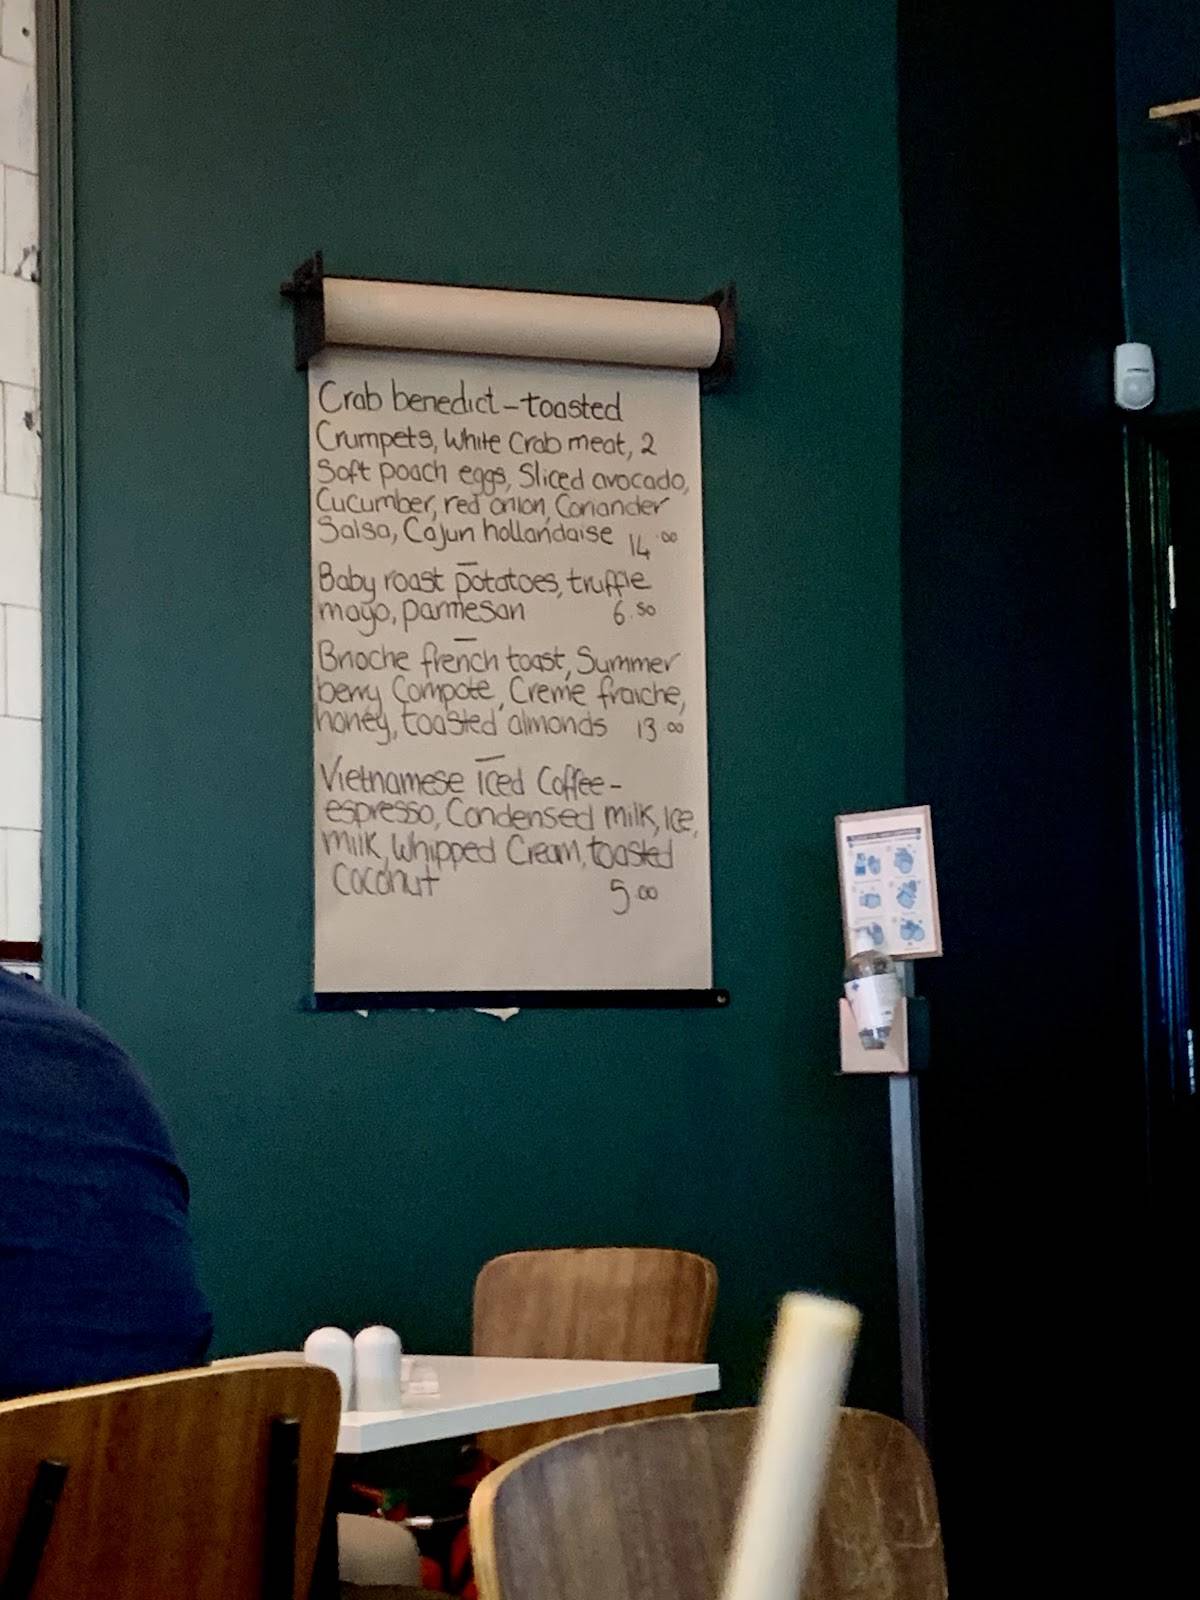 Crab benedict - toasted
Crumpets, White Crab meat, 2
Soft poach eggs, Sliced avocado,
Cucumber, red onion, Coriander
Salsa, Cajun hollandaise 14.00
Baby roast potatoes, truffle
mayo, parmesan 6.50
Brioche french toast, Summer
berry Compote, Creme fraiche,
honey, toasted almonds 13.00
Vietnamese iced Coffee -
espresso, Condensed milk, Ice,
Milk, Whipped Cream, toasted
Coconut 5.00